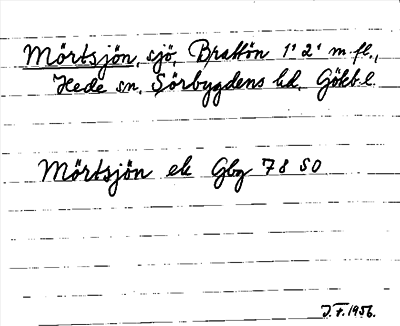 Mörtsjön, sjö, Brattön 1¹ 2¹ m. fl.,
Hede sn, Sörbygdens hd, Gökb.l.
Mörtsjön ek Gbg 78 SO
J. F. 1956.